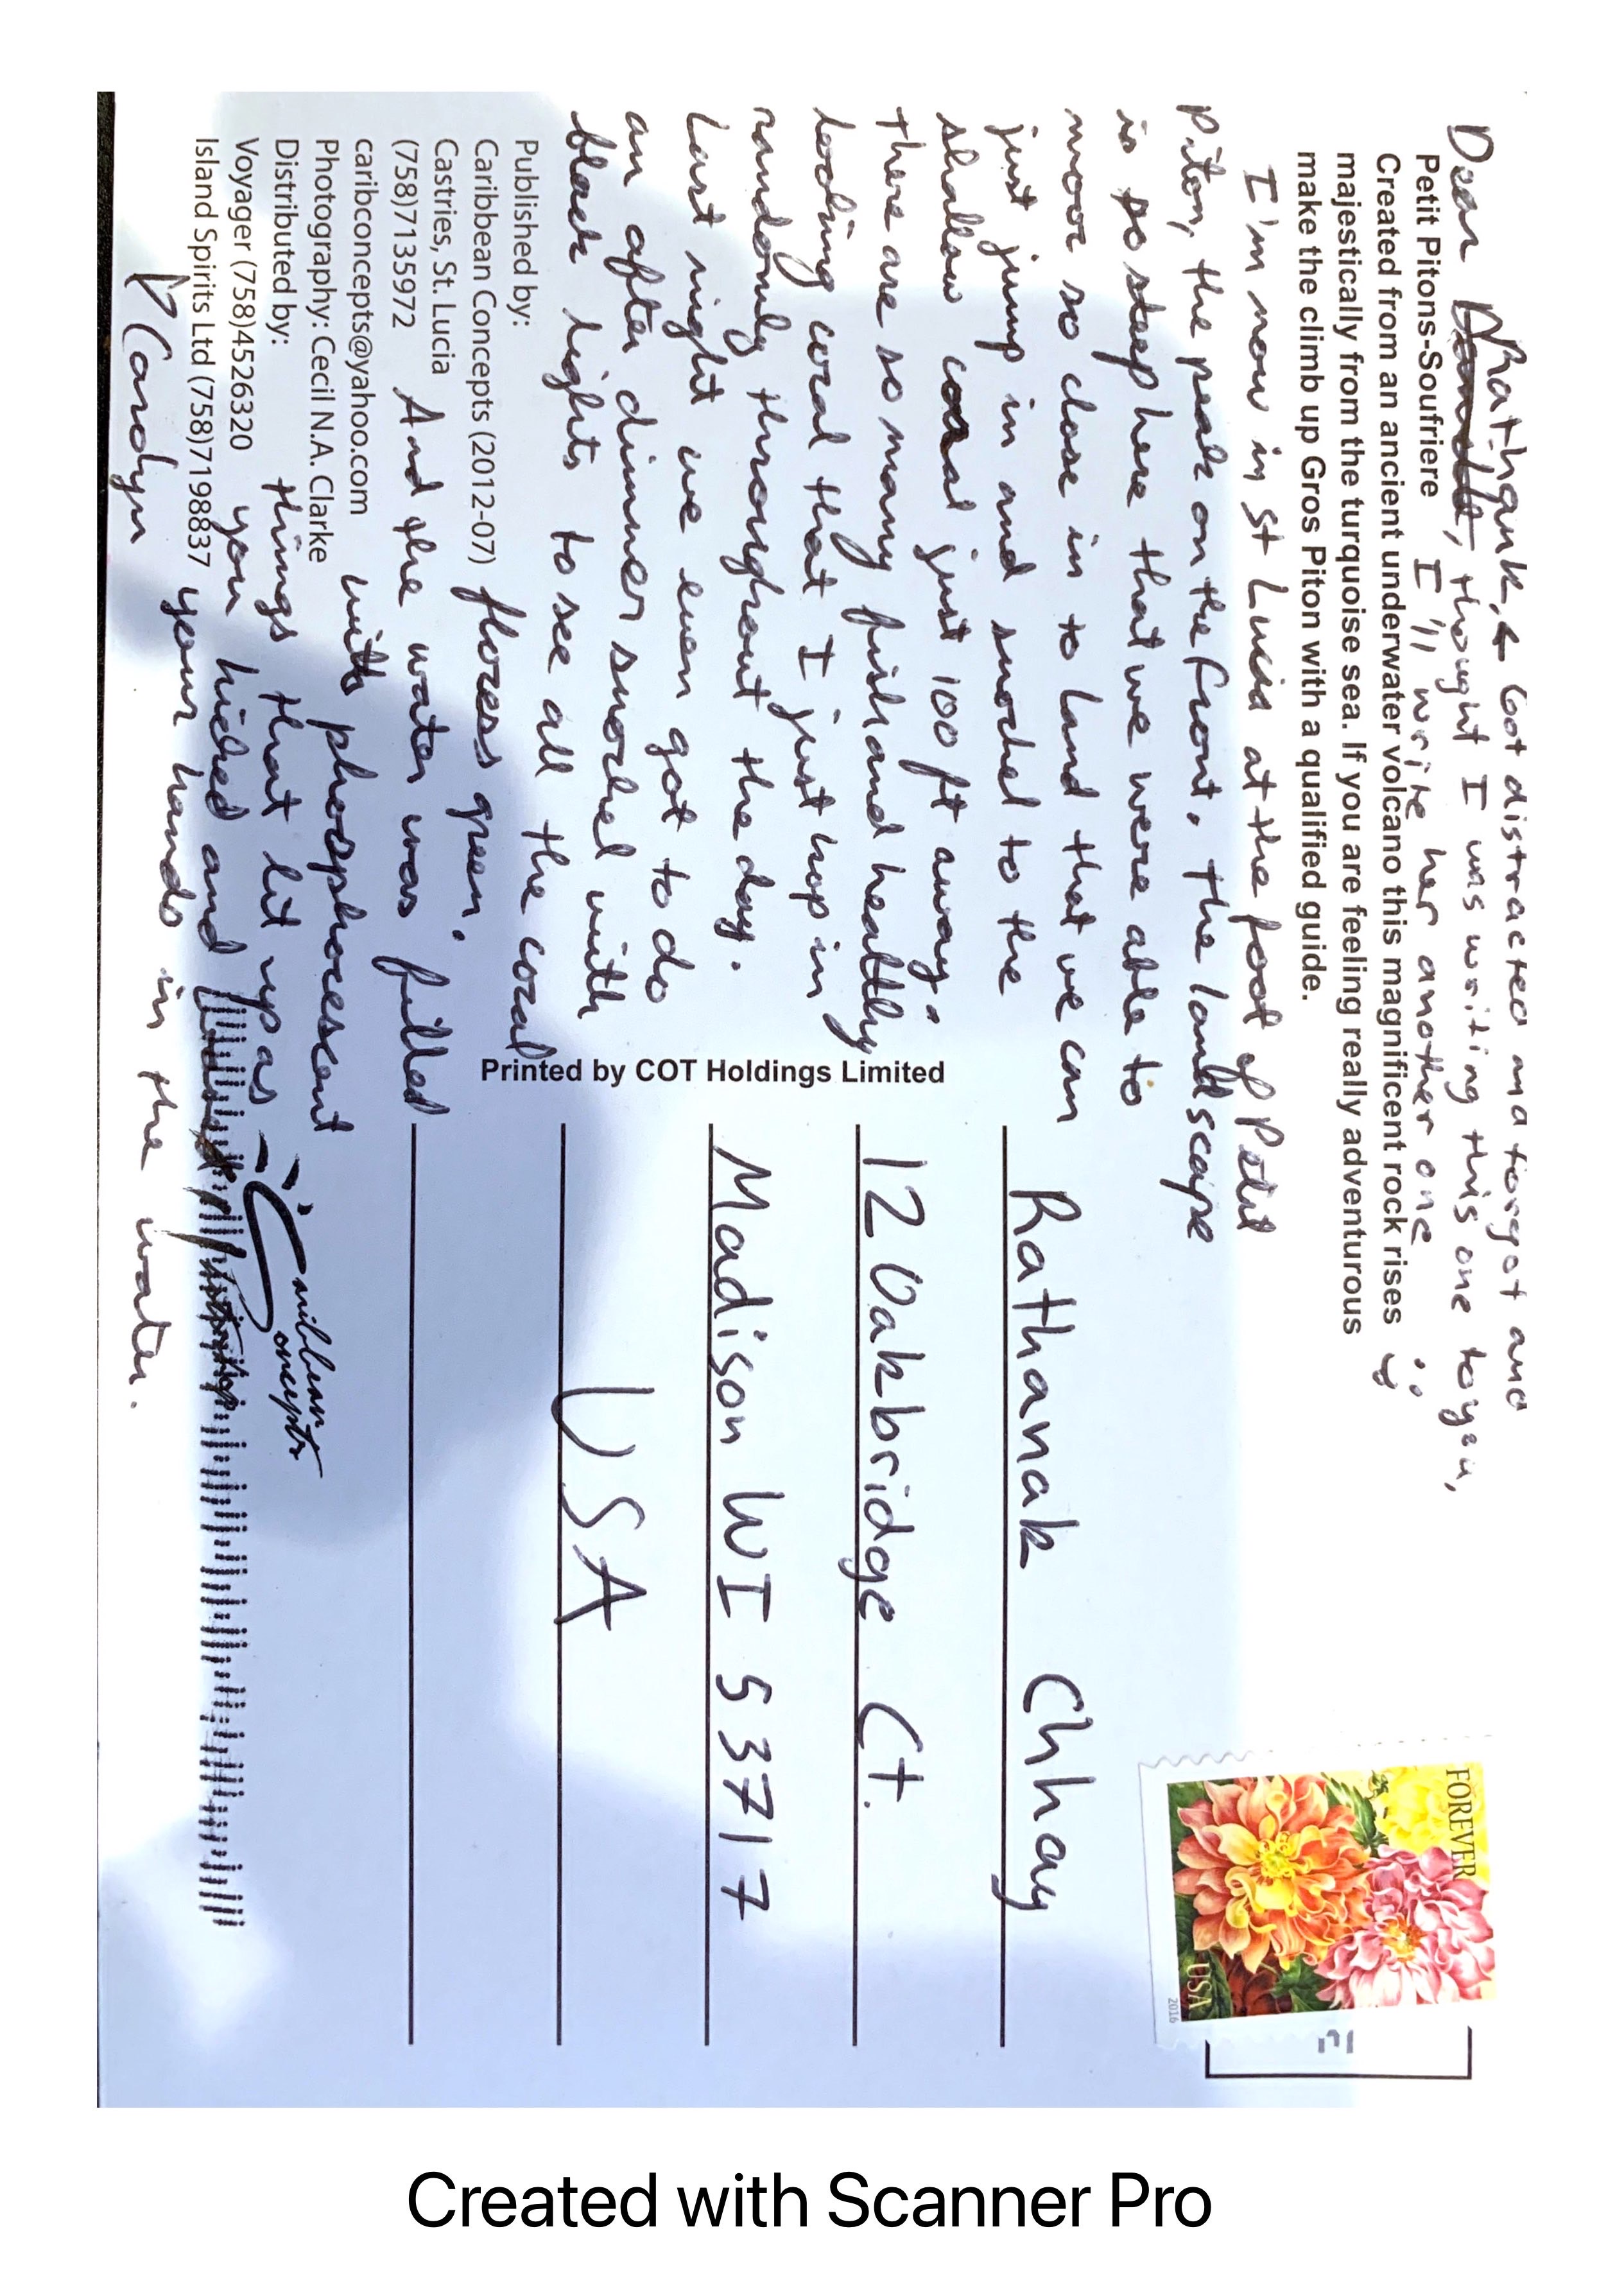 Dear Rathanak, ← Got distracted and forgot and
thought I was writing this one to you,
I'll write her another one :)
Petit Pitons-Soufriere
Created from an ancient underwater volcano this magnificent rock rises
majestically from the turquoise sea. If you are feeling really adventurous
make the climb up Gros Piton with a qualified guide.
I'm now in St Lucia at the foot of Petit
Piton, the peak on the front. The landscape
is so steep here that we were able to
moor so close in to land that we can
just jump in and snorkel to the
shallow coral just 100 ft away.
There are so many fish and healthy
looking coral that I just hop in
randomly throughout the day.
Last night we even got to do
an after dinner snorkel with
black lights to see all the coral
floress green.
And the water was filled
with phosphorescent
things that lit up as
you kicked and
your hands in the water.
♡ Carolyn
Published by:
Caribbean Concepts (2012-07)
Castries, St. Lucia
(758)7135972
caribconcepts@yahoo.com
Photography: Cecil N.A. Clarke
Distributed by:
Voyager (758)4526320
Island Spirits Ltd (758)7198837
Caribbean
Concepts
Printed by COT Holdings Limited
FOREVER
USA
2016
Rathanak Chhay
12 Oakbridge Ct.
Madison WI 53717
USA
Created with Scanner Pro